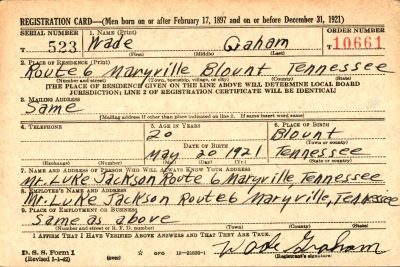 REGISTRATION CARD—(Men born on or after February 17, 1897 and on or before December 31, 1921)
SERIAL NUMBER 1. NAME (Print) ORDER NUMBER
T 523 Wade Graham T 10661
(First) (Middle) (Last)
2. PLACE OF RESIDENCE (Print)
Route 6 Maryville Blount Tennessee
(Number and street) (Town, township, village, or city) (County) (State)
[THE PLACE OF RESIDENCE GIVEN ON THE LINE ABOVE WILL DETERMINE LOCAL BOARD
JURISDICTION; LINE 2 OF REGISTRATION CERTIFICATE WILL BE IDENTICAL]
3. MAILING ADDRESS
Same
[Mailing address if other than place indicated on line 2. If same insert word same]
4. TELEPHONE 5. AGE IN YEARS 6. PLACE OF BIRTH
20 Blount
DATE OF BIRTH (Town or county)
May 20 1921 Tennessee
(Exchange) (Number) (Mo.) (Day) (Yr.) (State or country)
7. NAME AND ADDRESS OF PERSON WHO WILL ALWAYS KNOW YOUR ADDRESS
Mr. Luke Jackson Route 6 Maryville, Tennessee
8. EMPLOYER'S NAME AND ADDRESS
Mr. Luke Jackson Route 6 Maryville, Tennessee
9. PLACE OF EMPLOYMENT OR BUSINESS
Same as above
(Number and street or R. F. D. number) (Town) (County) (State)
I AFFIRM THAT I HAVE VERIFIED ABOVE ANSWERS AND THAT THEY ARE TRUE.
D. S. S. Form 1
(Revised 1-1-42) (over) GPO 16—21630-1 Wade Graham